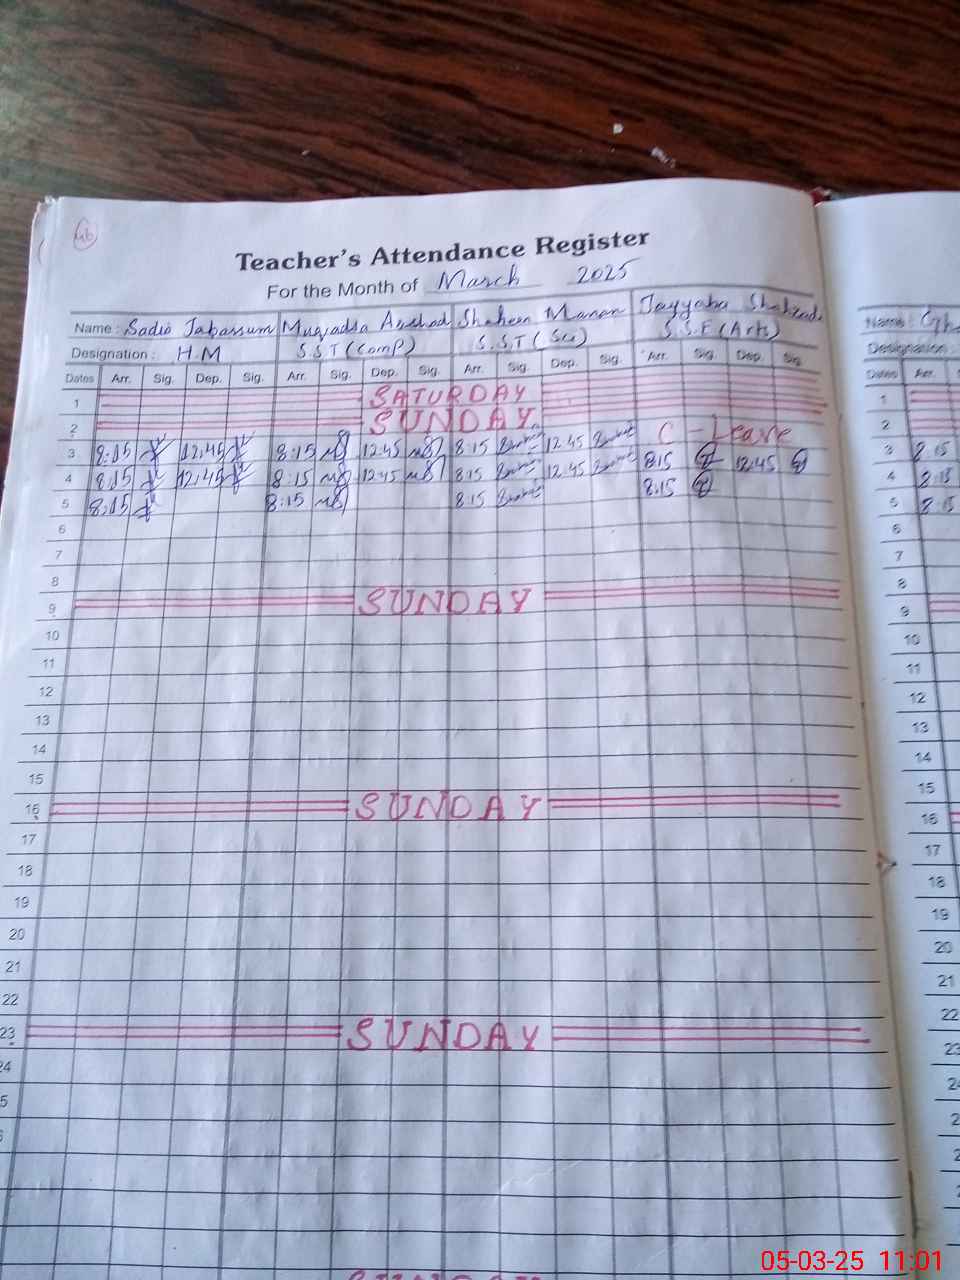 Teacher's Attendance Register
For the Month of March 2025
Name : Sadia Tabassum Muqadda Arshad Shaheen Manan Tayyaba Shahzadi Name :
Designation : H.M S.S.T (Comp) S.S.T (Sci) S.S.E (Arts) Designation
Dates Arr. Sig. Dep. Sig. Arr. Sig. Dep. Sig. Arr. Sig. Dep. Sig. Arr. Sig. Dep. Sig. Dates Arr.
1 SATURDAY 1
2 SUNDAY 2
3 8:15 12:45 8:15 12:45 8:15 12:45 C - Leave 3 8:15
4 8:15 12:45 8:15 12:45 8:15 12:45 8:15 12:45 4 8:15
5 8:15 8:15 8:15 8:15 5 8:15
6 6
7 7
8 8
9 SUNDAY 9
10 10
11 11
12 12
13 13
14 14
15 15
16 SUNDAY 16
17 17
18 18
19 19
20 20
21 21
22 22
23 SUNDAY 23
05-03-25 11:01